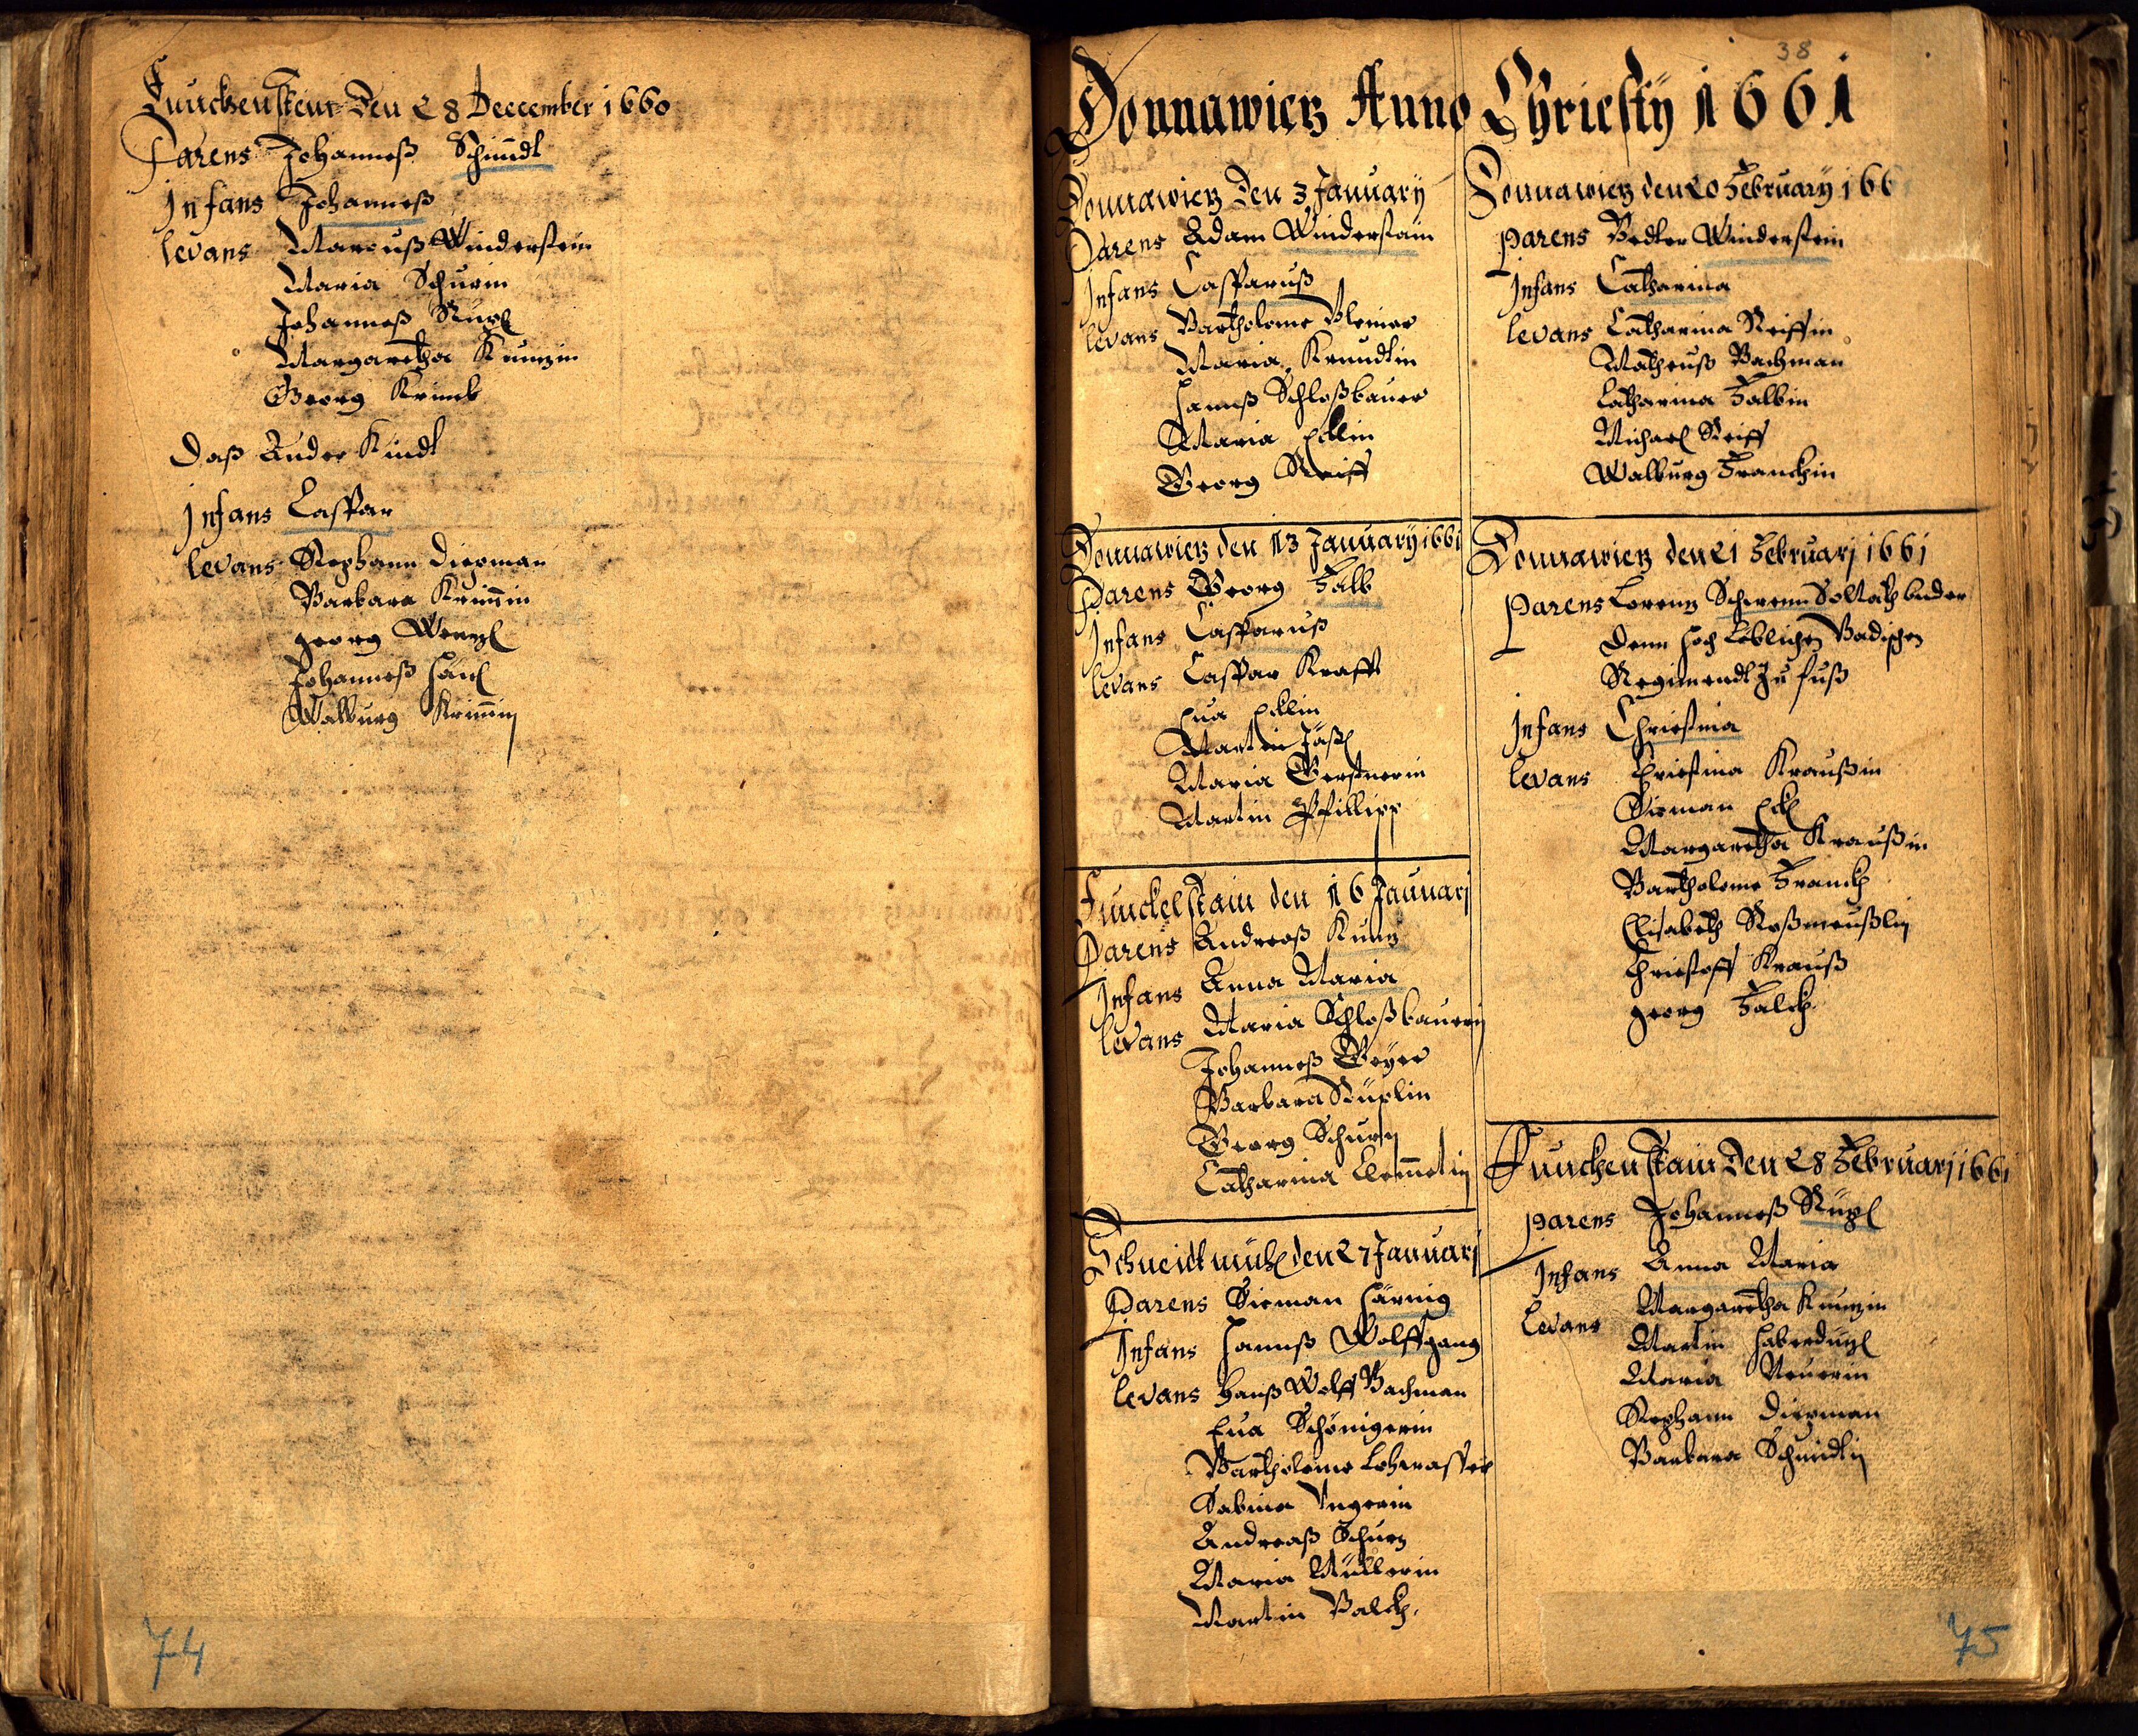 Funckenstein den 28 Deecember 1660
Parens Johanneß Schmidl
Infans Johanneß
levans Marcuß Winderstein
Maria Schurin
Johanneß Küpl
Margaretha Kunzin
Georg Krimb
Daß Ander Kindl
Infans Casspar
levans Stephann Diepman
Barbara Krim̄in
georg Wenzl
Johanneß
Walburg Krim̄in
74
38
Donnawicz Anno Chriesty 1661
Donnawicz den 3 January
Parens Adam Winderstain
Infans Cassparuß
levans Bartholome
Maria
Hannß Schloßbauer
Maria Ecklin
Georg Reiff
Donnawicz den 13 January 1661
Parens Georg Falb
Infans Cassparuß
levans Casspar Krafft
Eua Ecklin
Martin
Maria Gerstnerin
Martin Pfillipp
Funckelstain den 16 Januarj
Parens Andreaß Kunz
Infans Anna Maria
levans Maria Schloßbauerin
Johanneß Geyer
Barbara
Georg Schurz
Catharina
Schneidtmühl den 27 Januarj
Parens Sieman Häring
Infans Hannß Wolffgang
levans Hanß Wolff Bachman
Eua Schönigerin
Bartholome
Sabina Ungerin
Andreaß Schurz
Maria Müllerin
Martin Balck.
Donnawicz den 20 February 166
parens Winderstein
Infans Catharina
levans Catharina Reiffin
Matheuß Bachman
Catharina Falbin
Michael Reiff
Walburg Franckin
Donnawicz den 21 Februarj 1661
Parens Lorenz
Denn hoch Löblichen Badischen
Regimendt Zu fuß
Infans Chriestina
levans Chriestina Kraußin
Sieman Eckl
Margaretha Kraußin
Bartholome Franck
Elisabeth Roßmeußlin
Christoff Krauß
georg Falck.
Funckenstain den 28 Februarj 1661
parens Johanneß Küpl
Infans Anna Maria
Levans Margaretha Kunzin
Martin Haberdizl
Maria Neuerin
Stephann Diepman
Barbara Schmidlin
75